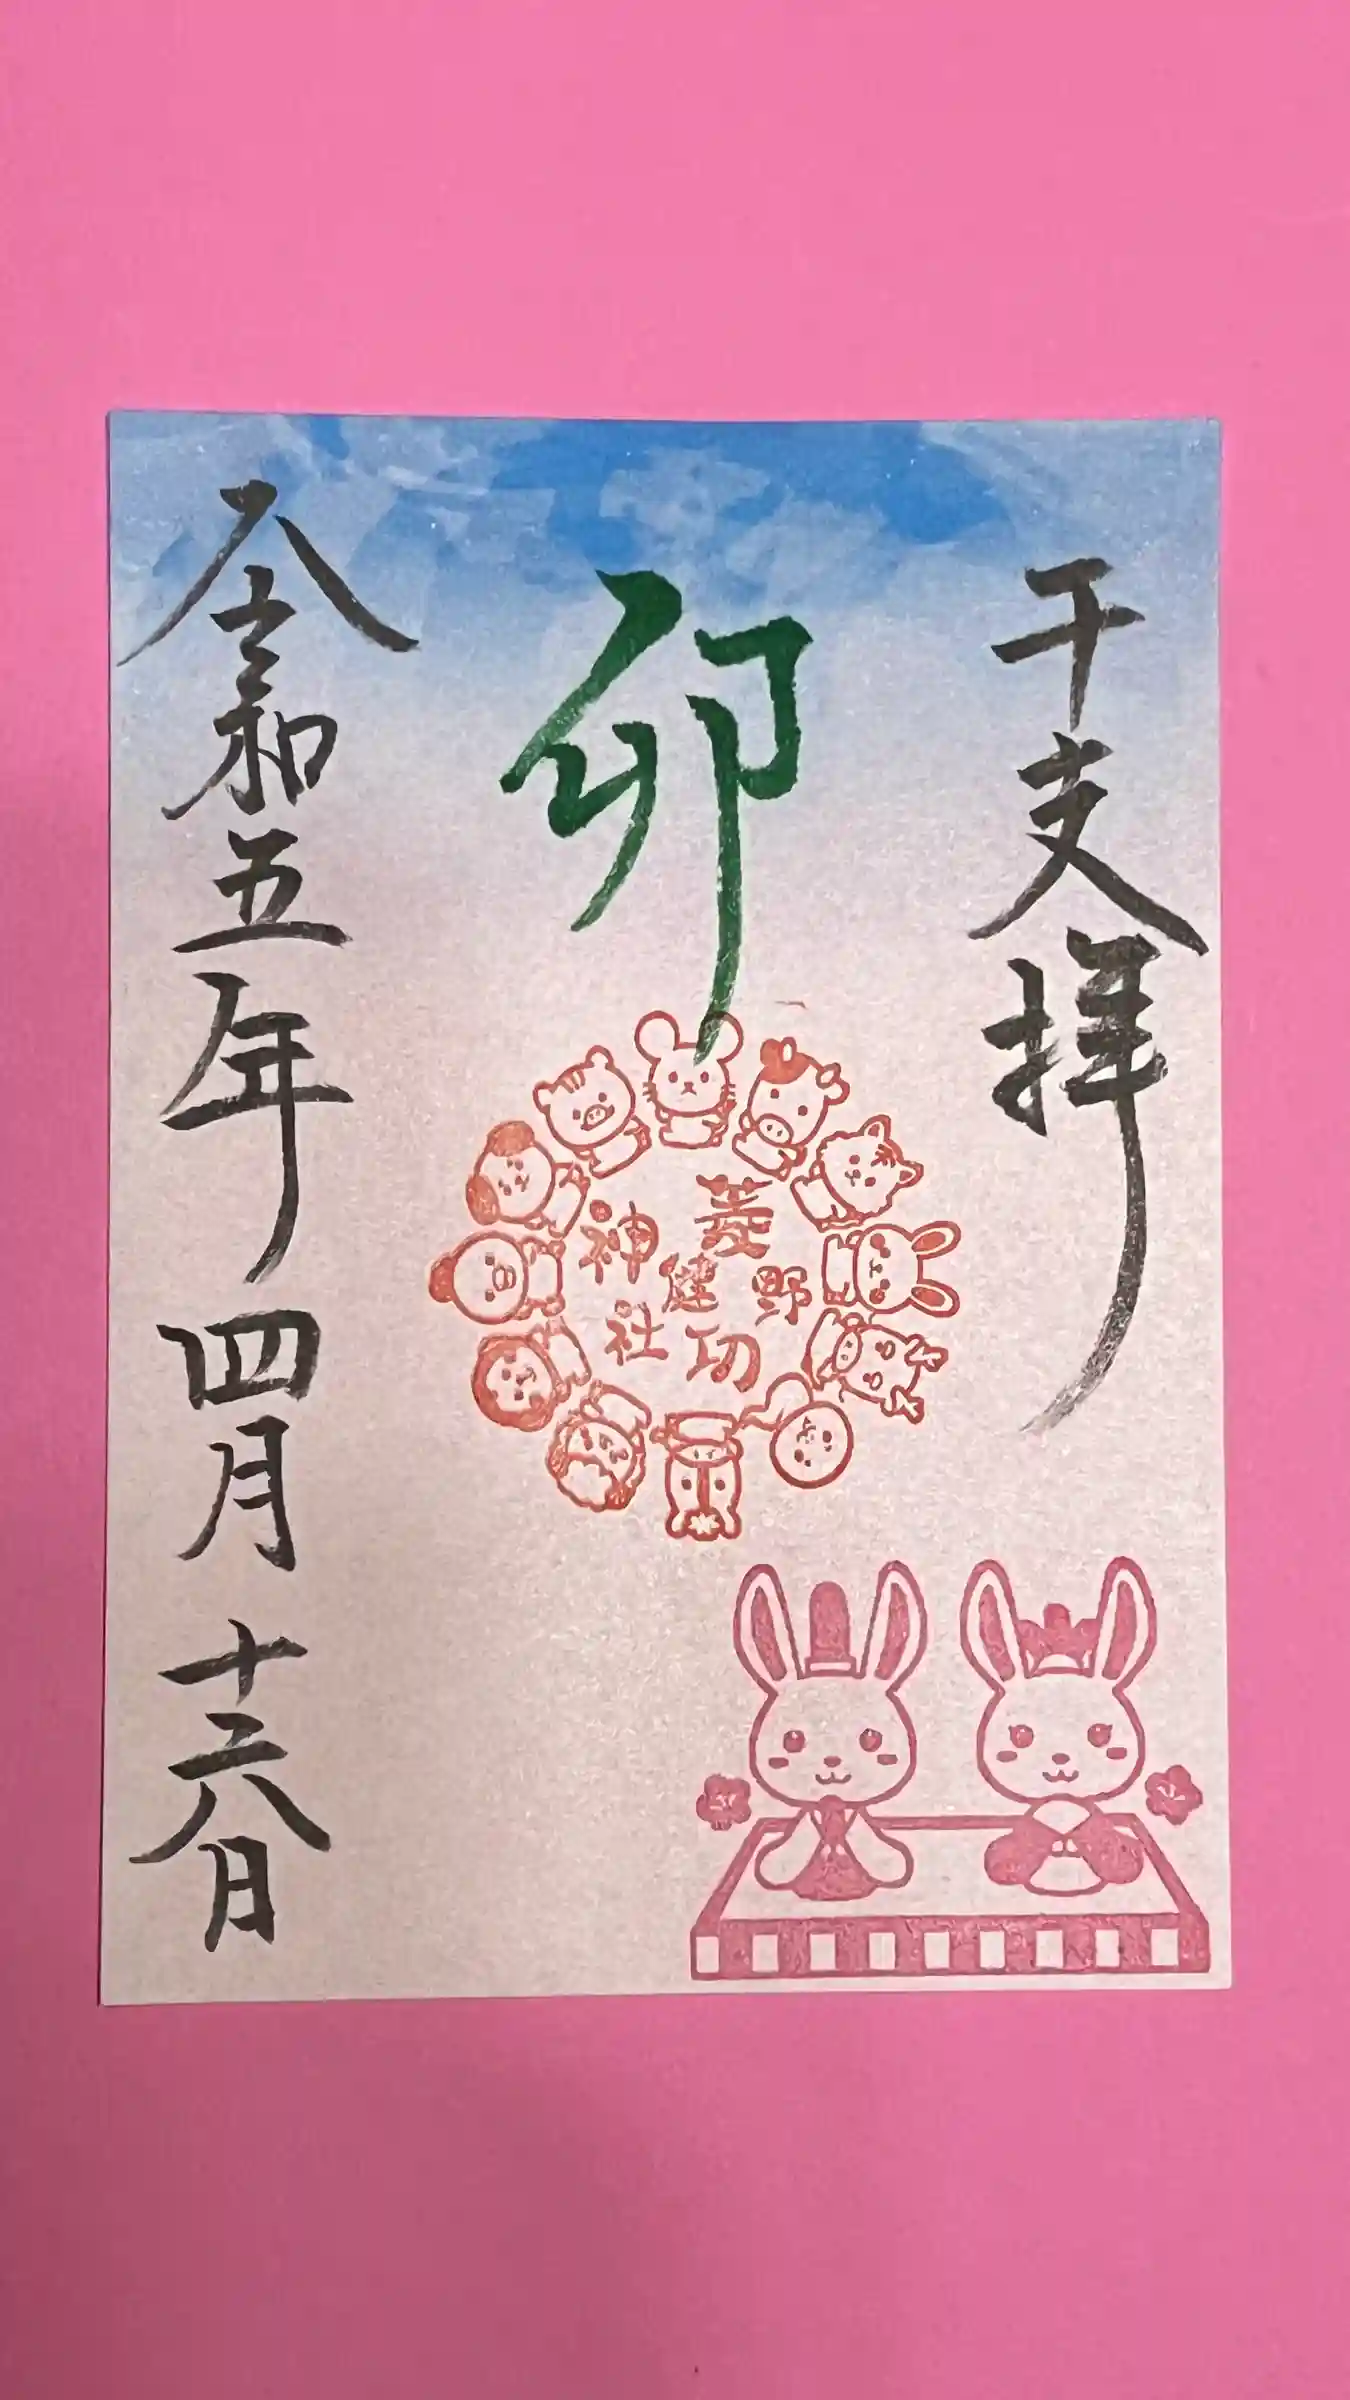 干支拝
卯
菱野
健功
神社
令和五年四月十六日